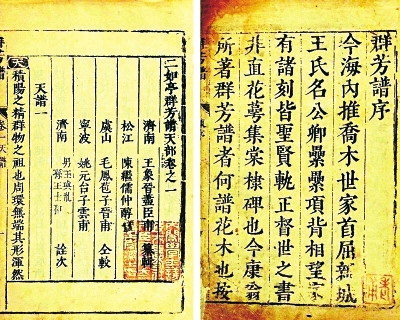 群芳譜序
今海內推喬木世家首屈新城
王氏名公卿纍纍項背相望家
有諸刻皆聖賢軌正督世之書
非直花萼集棠棣碑也今康翁
所著群芳譜者何譜花木也按
二如亭群芳譜天部卷之一
濟南 王象晉藎臣甫 纂輯
松江 陳繼儒仲醇甫
虞山 毛鳳苞子晉甫 仝較
寧波 姚元台子雲甫
濟南 男王與胤 孫王士和 詮次
天譜一
天 積陽之精群物之祖也周環無端其形渾然